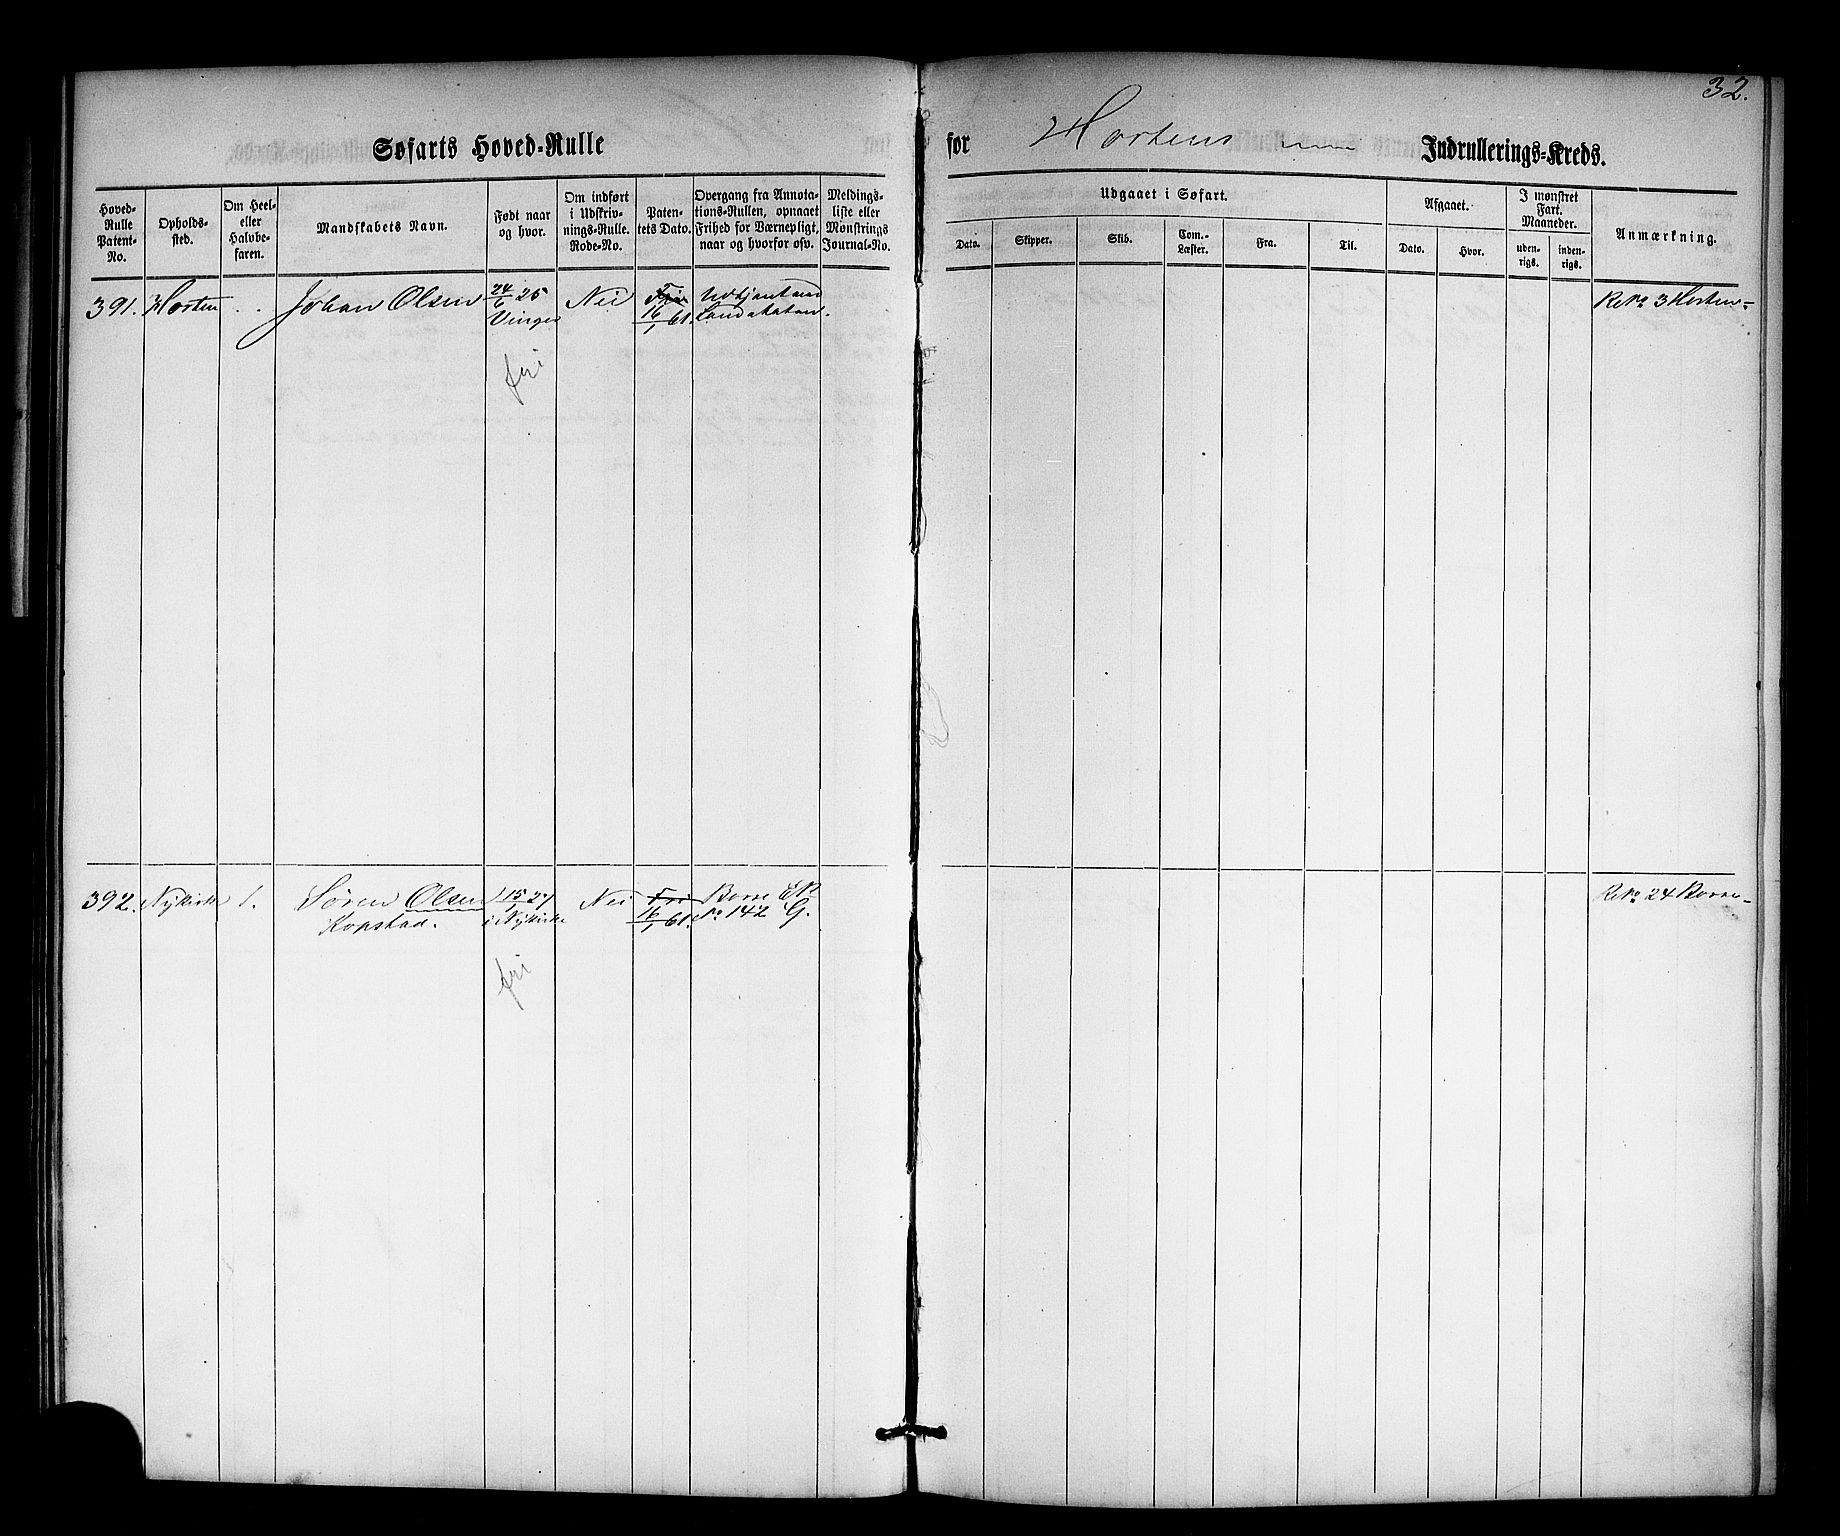 32.
Søfarts Hoved-Rulle for Hortens Indrullerings-Kreds.
Hoved-
Rulle
Patent-
No.
Opholds-
sted.
Om Heel-
eller
Halvbe-
faren.
Mandskabets Navn.
Født naar
og hvor.
Om indført
i Udskriv-
nings-Rulle.
Rode-No.
Paten-
tets Dato.
Overgang fra Annota-
tions-Rullen, opnaaet
Frihed for Værnepligt,
naar og hvorfor osv.
Meldings-
liste eller
Mønstrings
Journal-No.
Udgaaet i Søfart.
Dato.
Skipper.
Skib.
Com.-
Læster.
Fra.
Til.
Afgaaet.
Dato.
Hvor.
I mønstret
Fart.
Maaneder.
uden-
rigs.
inden-
rigs.
Anmærkning.
391. Horten . . Johan Olsen 24/6 25 Nei Fri Udtjent ved Re No 3 Horten-
Vinger 16/1 61. Landetaten.
fri
392. Nykirke 1. Søren Olsen 15/1 27 Nei Fri Borre ER Re No 24 Borre-
Kopstad. i Nykirke 16/1 61. No 142 G.
fri